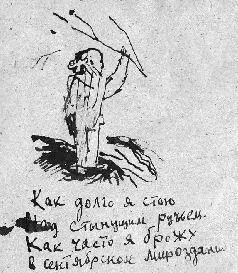 Как долго я стою
Над стынущим ручьем.
Как часто я брожу
В сентябрьском мироздании